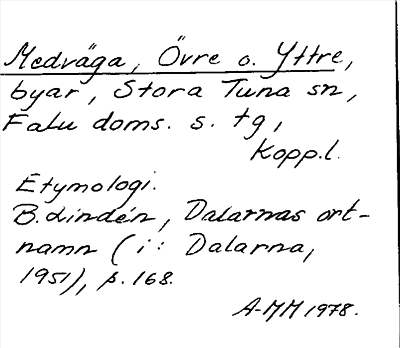 Medväga, Övre o. Yttre,
byar, Stora Tuna sn,
Falu doms. s. tg,
Kopp.l.
Etymologi.
B. Lindén, Dalarnas ort-
namn (i: Dalarna,
1951), p. 168.
A-MM 1978.